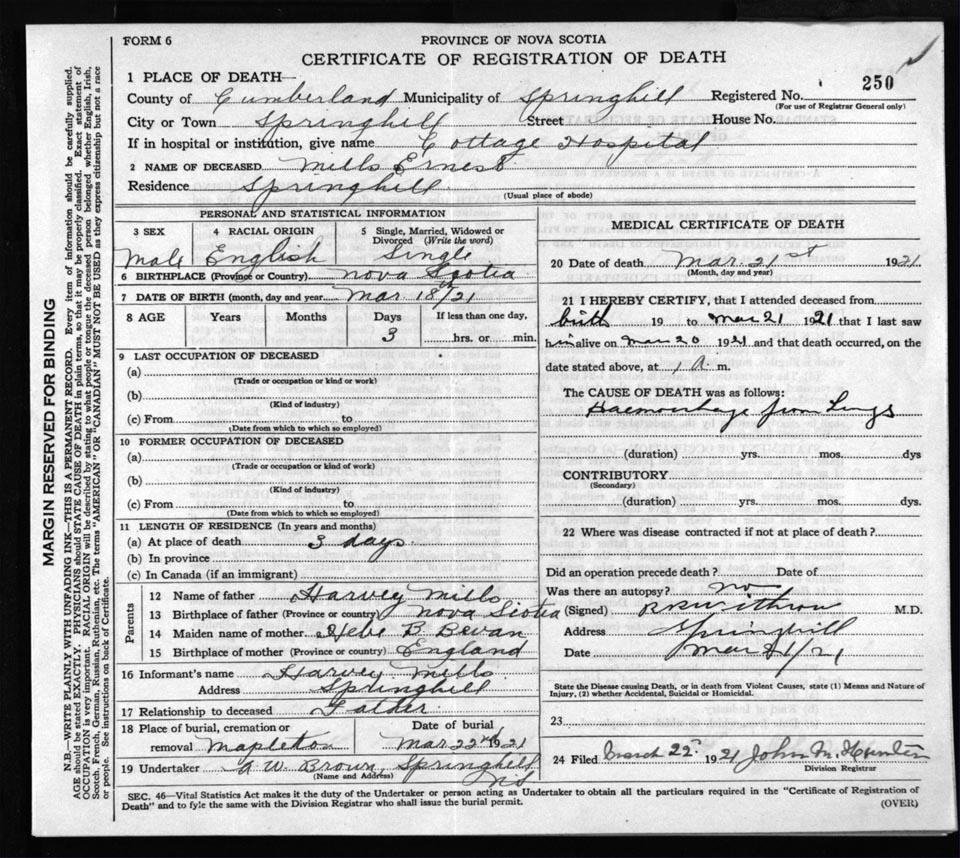 FORM 6
PROVINCE OF NOVA SCOTIA
CERTIFICATE OF REGISTRATION OF DEATH
1 PLACE OF DEATH—
County of Cumberland Municipality of Springhill Registered No. 250
(For use of Registrar General only)
City or Town Springhill Street House No.
If in hospital or institution, give name Cottage Hospital
2 NAME OF DECEASED Mills Ernest
Residence Springhill
(Usual place of abode)
PERSONAL AND STATISTICAL INFORMATION
3 SEX 4 RACIAL ORIGIN 5 Single, Married, Widowed or
Divorced (Write the word)
Male English Single
6 BIRTHPLACE (Province or Country) Nova Scotia
7 DATE OF BIRTH (month, day and year) Mar 18th/21
8 AGE Years Months Days If less than one day,
3 hrs. or min.
9 LAST OCCUPATION OF DECEASED
(a)
(Trade or occupation or kind or work)
(b)
(Kind of industry)
(c) From to
(Date from which to which so employed)
10 FORMER OCCUPATION OF DECEASED
(a)
(Trade or occupation or kind or work)
(b)
(Kind of industry)
(c) From to
(Date from which to which so employed)
11 LENGTH OF RESIDENCE (In years and months)
(a) At place of death 3 days
(b) In province
(c) In Canada (if an immigrant)
Parents
12 Name of father Harvey Mills
13 Birthplace of father (Province or country) Nova Scotia
14 Maiden name of mother Hebe B Bevan
15 Birthplace of mother (Province or country) England
16 Informant's name Harvey Mills
Address Springhill
17 Relationship to deceased Father
18 Place of burial, cremation or Date of burial
removal Mapleton Mar 22nd 1921
19 Undertaker A W Brown, Springhill
(Name and Address) NS
MEDICAL CERTIFICATE OF DEATH
20 Date of death Mar. 21st 1921
(Month, day and year)
21 I HEREBY CERTIFY, that I attended deceased from
birth 19 to Mar 21 1921 that I last saw
him alive on Mar 20 1921 and that death occurred, on the
date stated above, at 1 A m.
The CAUSE OF DEATH was as follows:
Haemorrhage from Lungs
(duration) yrs. mos. dys
CONTRIBUTORY
(Secondary)
(duration) yrs. mos. dys.
22 Where was disease contracted if not at place of death?
Did an operation precede death? Date of
Was there an autopsy? no
(Signed) M.D.
Address Springhill
Date Mar 21/21
State the Disease causing Death, or in death from Violent Causes, state (1) Means and Nature of
Injury, (2) whether Accidental, Suicidal or Homicidal.
23
24 Filed March 22 1921 John M. Hunter
Division Registrar
SEC. 46—Vital Statistics Act makes it the duty of the Undertaker or person acting as Undertaker to obtain all the particulars required in the "Certificate of Registration of
Death" and to fyle the same with the Division Registrar who shall issue the burial permit. (OVER)
MARGIN RESERVED FOR BINDING
N.B.—WRITE PLAINLY WITH UNFADING INK—THIS IS A PERMANENT RECORD. Every item of information should be carefully supplied.
AGE should be stated EXACTLY. PHYSICIANS should STATE CAUSE OF DEATH in plain terms, so that it may be properly classified. Exact statement of
OCCUPATION is very important. RACIAL ORIGIN will be described by stating to what people or tongue the deceased person belonged whether English, Irish,
Scotch, French, German, Russian, Ruthenian, etc. The terms "AMERICAN" OR "CANADIAN" MUST NOT BE USED as they express citizenship but not a race
or people. See instructions on back of Certificate.